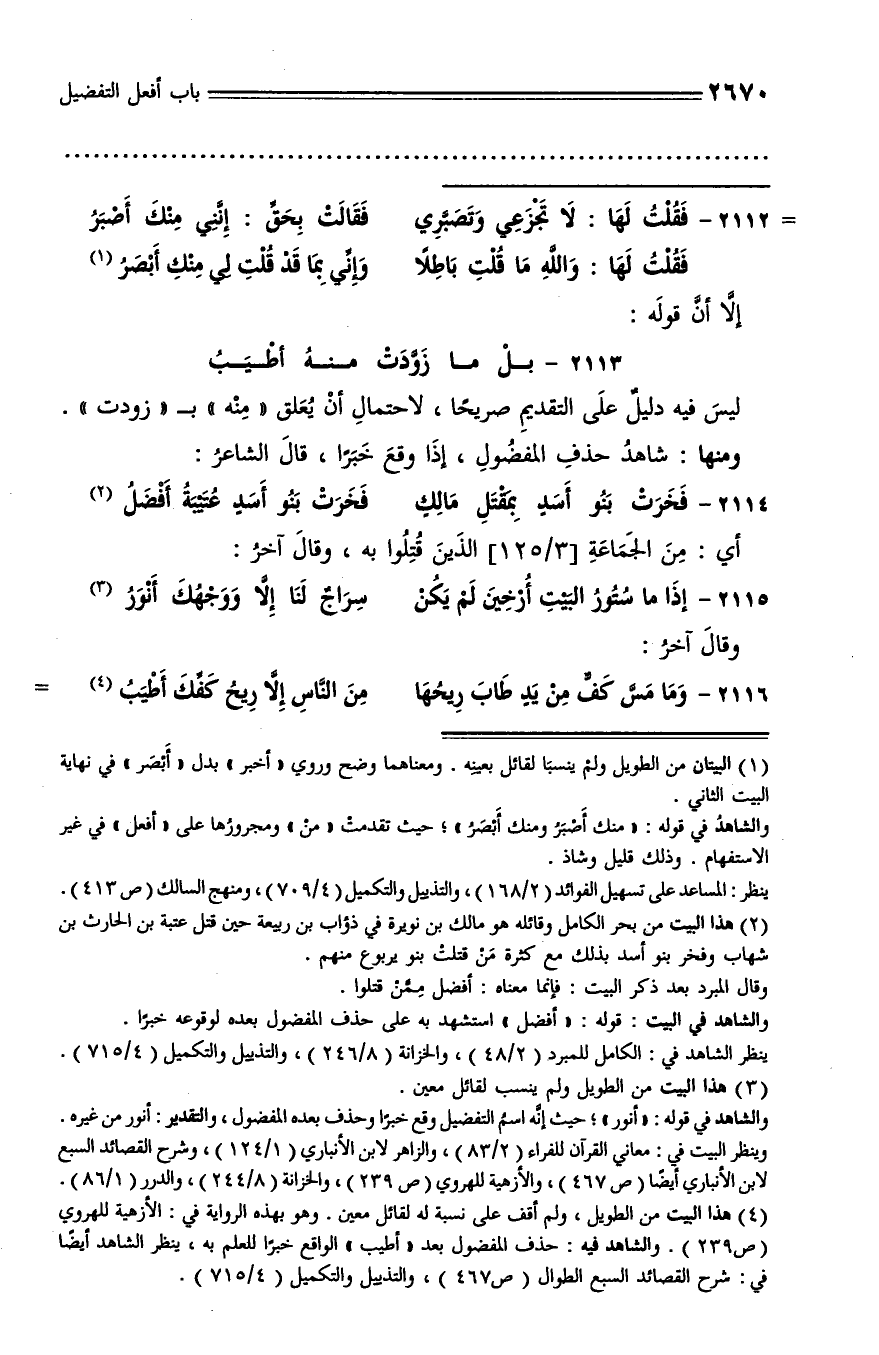 ٢٦٧٠ باب أفعل التفضيل
= ٢١١٢ - فَقُلْتُ لَهَا : لَا تَجْزَعِي وَتَصَبَّرِي فَقَالَتْ بِحَقٍّ : إِنَّنِي مِنْكَ أَصْبَرُ
فَقُلْتُ لَهَا : وَاللَّهِ مَا قُلْتِ بَاطِلًا وَإِنِّي بِمَا قَدْ قُلْتِ لِي مِنْكِ أَبْصَرُ (١)
إِلَّا أنَّ قولَه :
٢١١٣ - بـلْ مـا زَوَّدَتْ مـنـهُ أطْـيَـبُ
ليسَ فيه دليلٌ علَى التقديمِ صريحًا ، لاحتمالِ أنْ يُعَلق « مِنْه » بـ « زودت » .
ومنها : شاهدُ حذفِ المفضُولِ ، إذَا وقعَ خَبَرًا ، قالَ الشاعرُ :
٢١١٤ - فَخَرَتْ بَنُو أَسَدٍ بِمَقْتَلِ مَالِكٍ فَخَرَتْ بَنُو أَسَدٍ عُتَيْبَةُ أَفْضَلُ (٢)
أي : مِنَ الجَمَاعَةِ [١٢٥/٣] الذَينَ قُتِلُوا به ، وقالَ آخرُ :
٢١١٥ - إذَا ما سُتُورُ البَيْتِ أُرْخِينَ لَمْ يَكُنْ سِرَاجٌ لَنَا إِلَّا وَوَجْهُكَ أَنْوَرُ (٣)
وقالَ آخرُ :
٢١١٦ - وَمَا مَسَّ كَفٌّ مِنْ يَدٍ طَابَ رِيحُهَا مِنَ النَّاسِ إِلَّا رِيحُ كَفِّكَ أَطْيَبُ (٤) =
(١) البيتان من الطويل ولم ينسبَا لقائل بعينِه . ومعناهما وضح وروي « أخبر » بدل « أَبْصَر » في نهاية
البيت الثاني .
والشاهدُ في قوله : « منك أَصْبَرُ ومنك أَبْصَرُ » ؛ حيث تقدمتْ « منْ » ومجرورُها على « أفعل » في غير
الاستفهام . وذلك قليل وشاذ .
ينظر : المساعد على تسهيل الفوائد ( ١٦٨/٢ ) ، والتذييل والتكميل ( ٧٠٩/٤ ) ، ومنهج السالك ( ص ٤١٣ ) .
(٢) هذا البيت من بحر الكامل وقائله هو مالك بن نويرة في ذؤاب بن ربيعة حين قتل عتبة بن الحارث بن
شهاب وفخر بنو أسد بذلك مع كثرة مَنْ قتلتْ بنو يربوع منهم .
وقال المبرد بعد ذكر البيت : فإنما معناه : أفضل مِـمَّنْ قتلوا .
والشاهد في البيت : قوله : « أفضل » استشهد به على حذف المفضول بعده لوقوعه خبرًا .
ينظر الشاهد في : الكامل للمبرد ( ٤٨/٢ ) ، والخزانة ( ٢٤٦/٨ ) ، والتذييل والتكميل ( ٧١٥/٤ ) .
(٣) هذا البيت من الطويل ولم ينسب لقائل معين .
والشاهد في قوله : « أنور » ؛ حيث إنَّه اسمُ التفضيل وقع خبرًا وحذف بعده المفضول ، والتقدير : أنور من غيره .
وينظر البيت في : معاني القرآن للفراء ( ٨٣/٢ ) ، والزاهر لابن الأنباري ( ١٢٤/١ ) ، وشرح القصائد السبع
لابن الأنباري أيضًا ( ص ٤٦٧ ) ، والأزهية للهروي ( ص ٢٣٩ ) ، والخزانة ( ٢٤٤/٨ ) ، والدرر ( ٨٦/١ ) .
(٤) هذا البيت من الطويل ، ولم أقف على نسبة له لقائل معين . وهو بهذه الرواية في : الأزهية للهروي
( ص٢٣٩ ) . والشاهد فيه : حذف المفضول بعد « أطيب » الواقع خبرًا للعلم به ، ينظر الشاهد أيضًا
في : شرح القصائد السبع الطوال ( ص٤٦٧ ) ، والتذييل والتكميل ( ٧١٥/٤ ) .